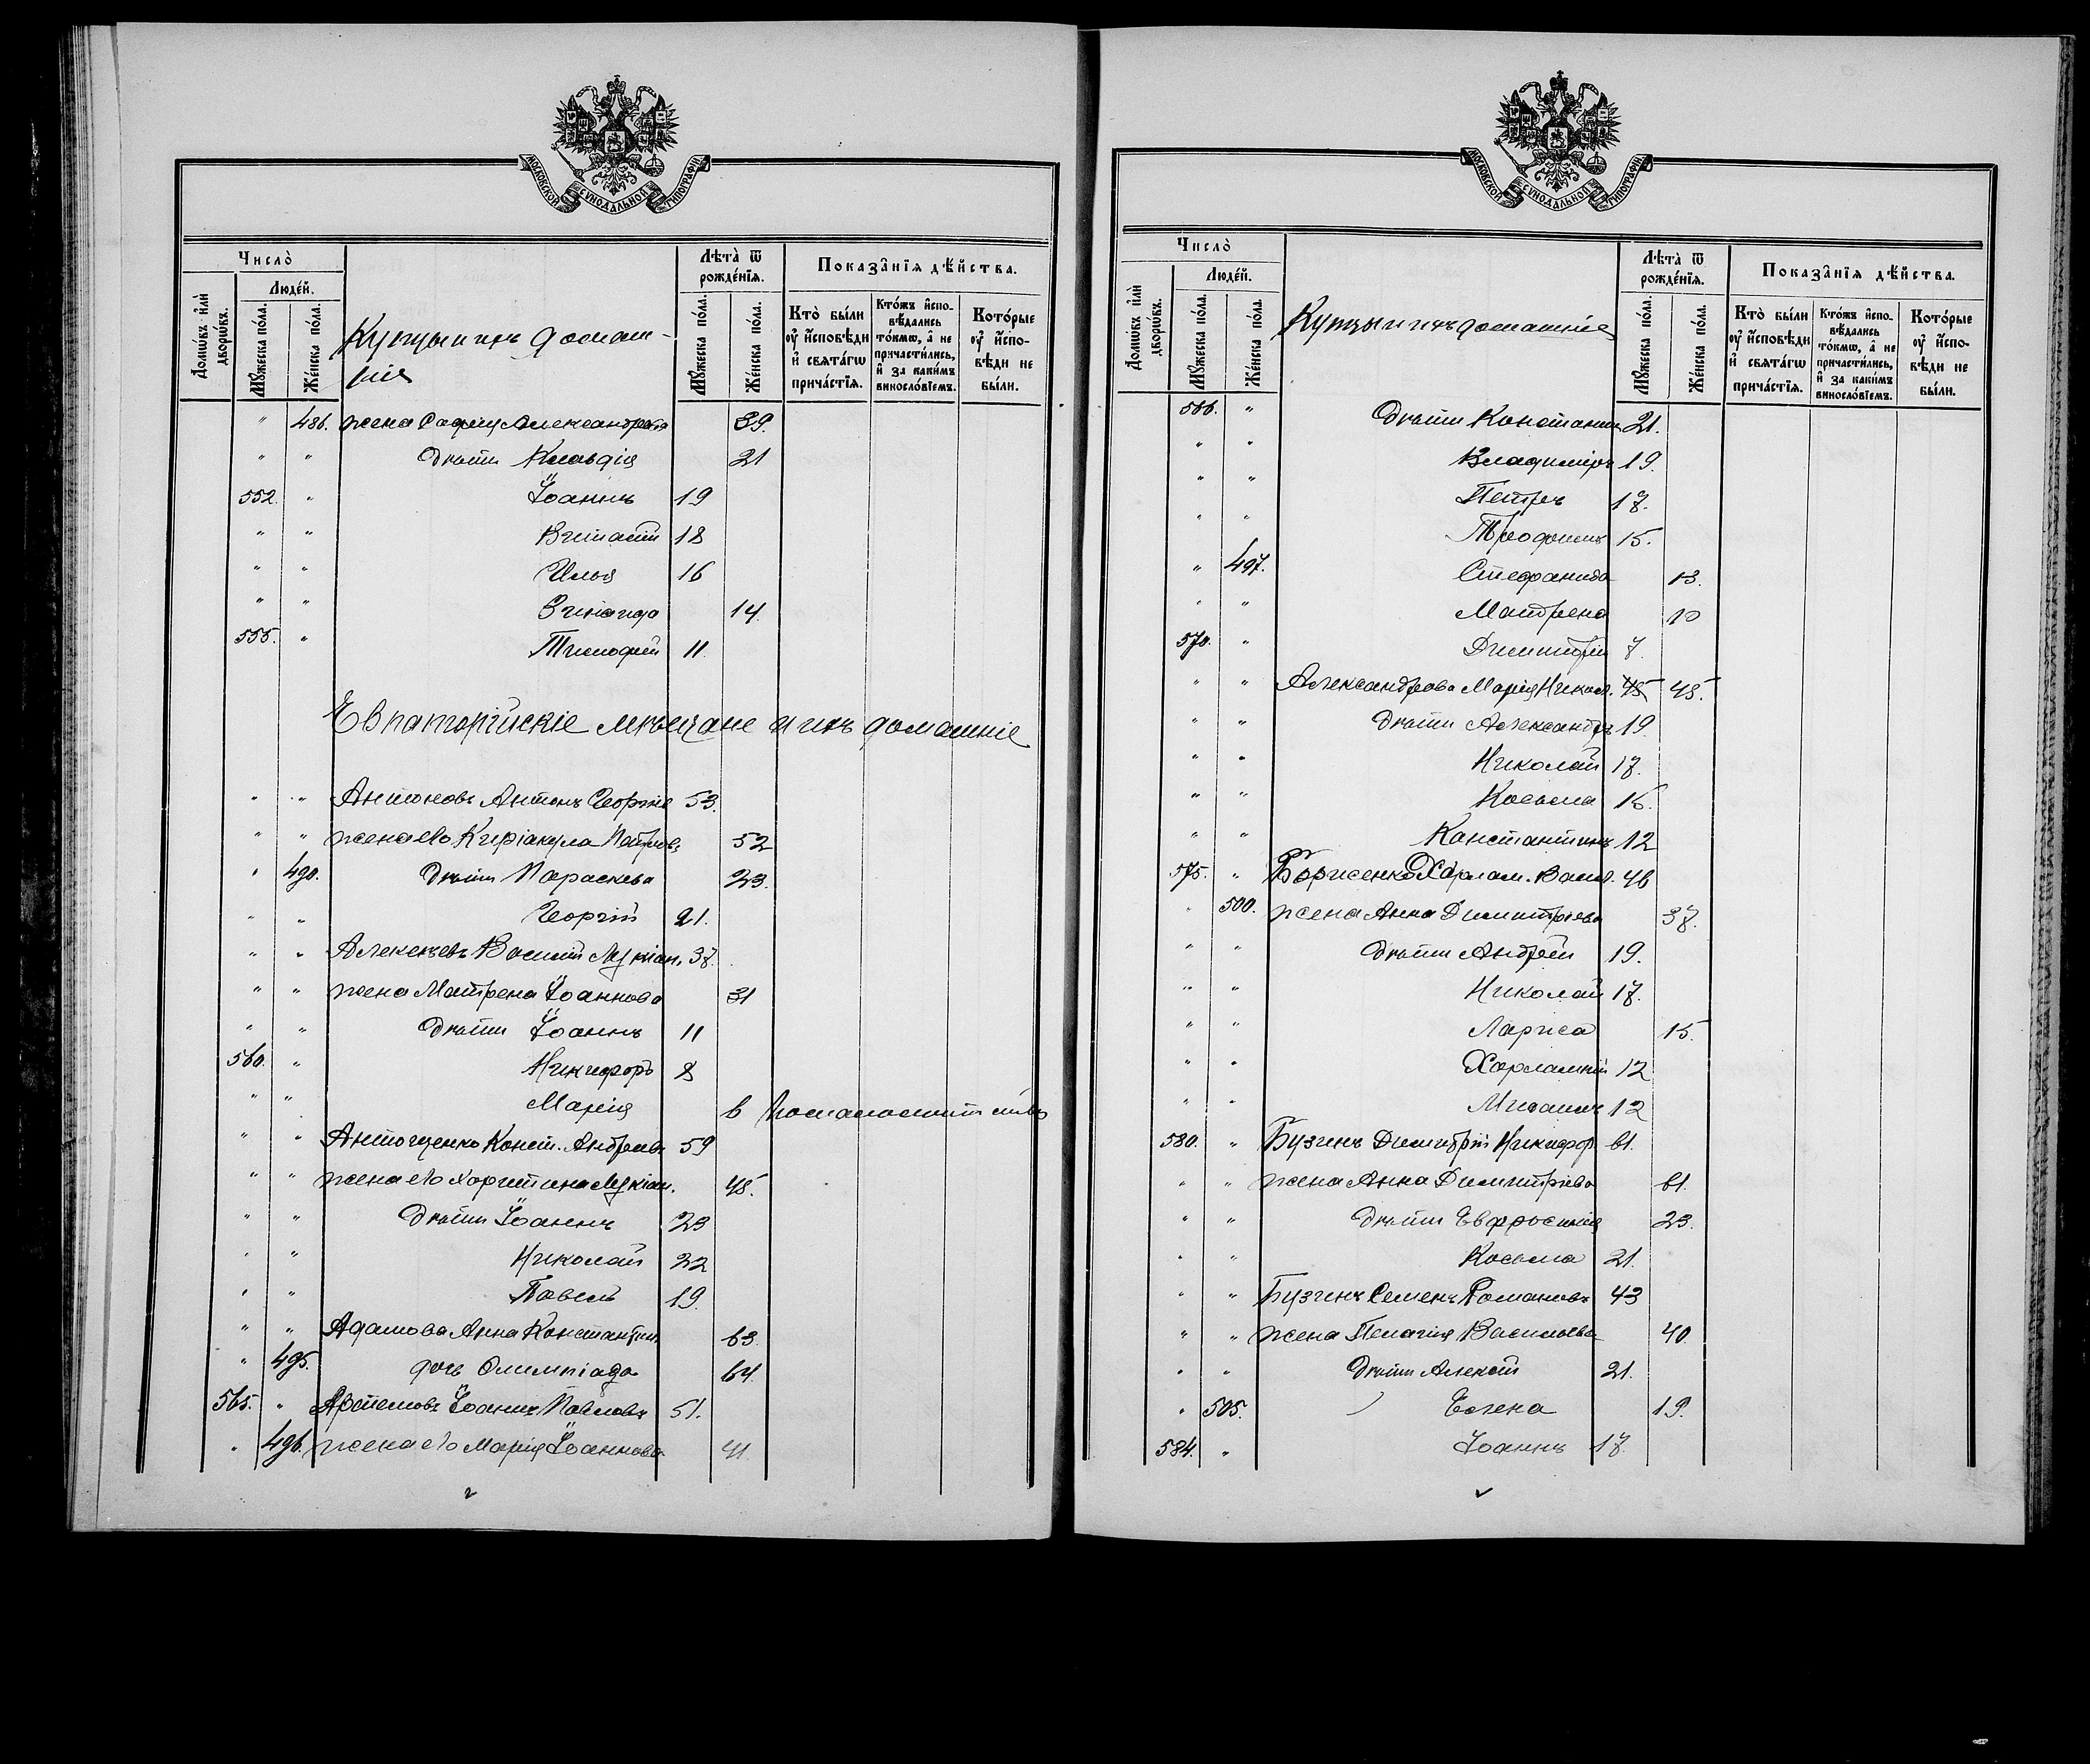 МОСКОВСКОЙ СѴНОДАЛЬНОЙ ТИПОГРАФІИ.
Число̀
Людéй.
Домѡ́въ и҆лѝ дворѡ́въ.
Мꙋ́жеска по́ла.
Же́нска по́ла.
Купцы и ихъ домаш-
ніе
Лѣ́та ѿ рожде́нїѧ.
Мꙋ́жеска по́ла.
Же́нска по́ла.
Показа̑нїѧ дѣ́йства.
Кто̀ бы́ли ᲂу҆ и҆́сповѣди и҆ свѧта́гѡ прича́стїѧ.
Кто́жъ и҆спо-вѣ́дались то́кмѡ, а҆ не причасти́лись, и҆ за каки́мъ винословїемъ.
Кото́рые ᲂу҆ и҆́спо-вѣди не бы́ли.
" 486. жена Софія Александрова 39.
" " Дѣти Клавдія 21
552. " Іоаннъ 19
" " Виталій 18
" " Илья 16
" " Зинаида 14.
555. " Тимофей 11.
Евпаторійскіе мѣщане и ихъ домашніе
" " Антоновъ Антонъ Георгіе 53.
" " жена его Киріакула Петров. 52
" 490. Дѣти Параскева 23.
" " Георгій 21.
" " Алексѣевъ Василій Лукіан. 37.
" " жена Матрена Іоаннова 31
" " Дѣти Іоаннъ 11
560. " Никифоръ 8
" " Марія 6
" " Антощенко Конст. Андреев. 59
" " жена его Харитина Лукіан. 45.
" " Дѣти Іоаннъ 23
" " Николай 22
" " Павелъ 19.
" " Адамова Анна Константин. 63.
" 495. дочь Олимпіада 64.
565. " Артемовъ Іоаннъ Павловъ 51.
" 496. жена его Марія Іоаннова 41.
МОСКОВСКОЙ СѴНОДАЛЬНОЙ ТИПОГРАФІИ.
Число̀
Людéй.
Домѡ́въ и҆лѝ дворѡ́въ.
Мꙋ́жеска по́ла.
Же́нска по́ла.
Купцы и ихъ домашніе
Лѣ́та ѿ рожде́нїѧ.
Мꙋ́жеска по́ла.
Же́нска по́ла.
Показа̑нїѧ дѣ́йства.
Кто̀ бы́ли ᲂу҆ и҆́сповѣди и҆ свѧта́гѡ прича́стїѧ.
Кто́жъ и҆спо-вѣ́дались то́кмѡ, а҆ не причасти́лись, и҆ за каки́мъ винословїемъ.
Кото́рые ᲂу҆ и҆́спо-вѣди не бы́ли.
566. " Дѣти Константин 21.
" " Владиміръ 19.
" " Петръ 17.
" " Трофимъ 15.
" 497. Стефанида 13.
" " Матрена 10
570. " Димитрій 7.
" " Александрова Марія Никол. 45 45.
" " Дѣти Александръ 19.
" " Николай 17.
" " Косьма 16.
" " Константинъ 12
575. " Борисенко Харлам. Васил. 46
" 500. жена Анна Димитріева 37.
" " Дѣти Андрей 19.
" " Николай 17.
" " Лариса 15.
" " Харлампій 12
" " Михаилъ 12
580. " Бузинъ Димитрій Никифор. 61.
" " жена Анна Димитріева 61.
" " Дѣти Евфросинія 23.
" " Косьма 21.
" " Бузинъ Семенъ Романовъ 43
" " жена Пелагія Васильева 40.
" " Дѣти Алексѣй 21.
" 505. Елена 19.
584. " Іоаннъ 17.